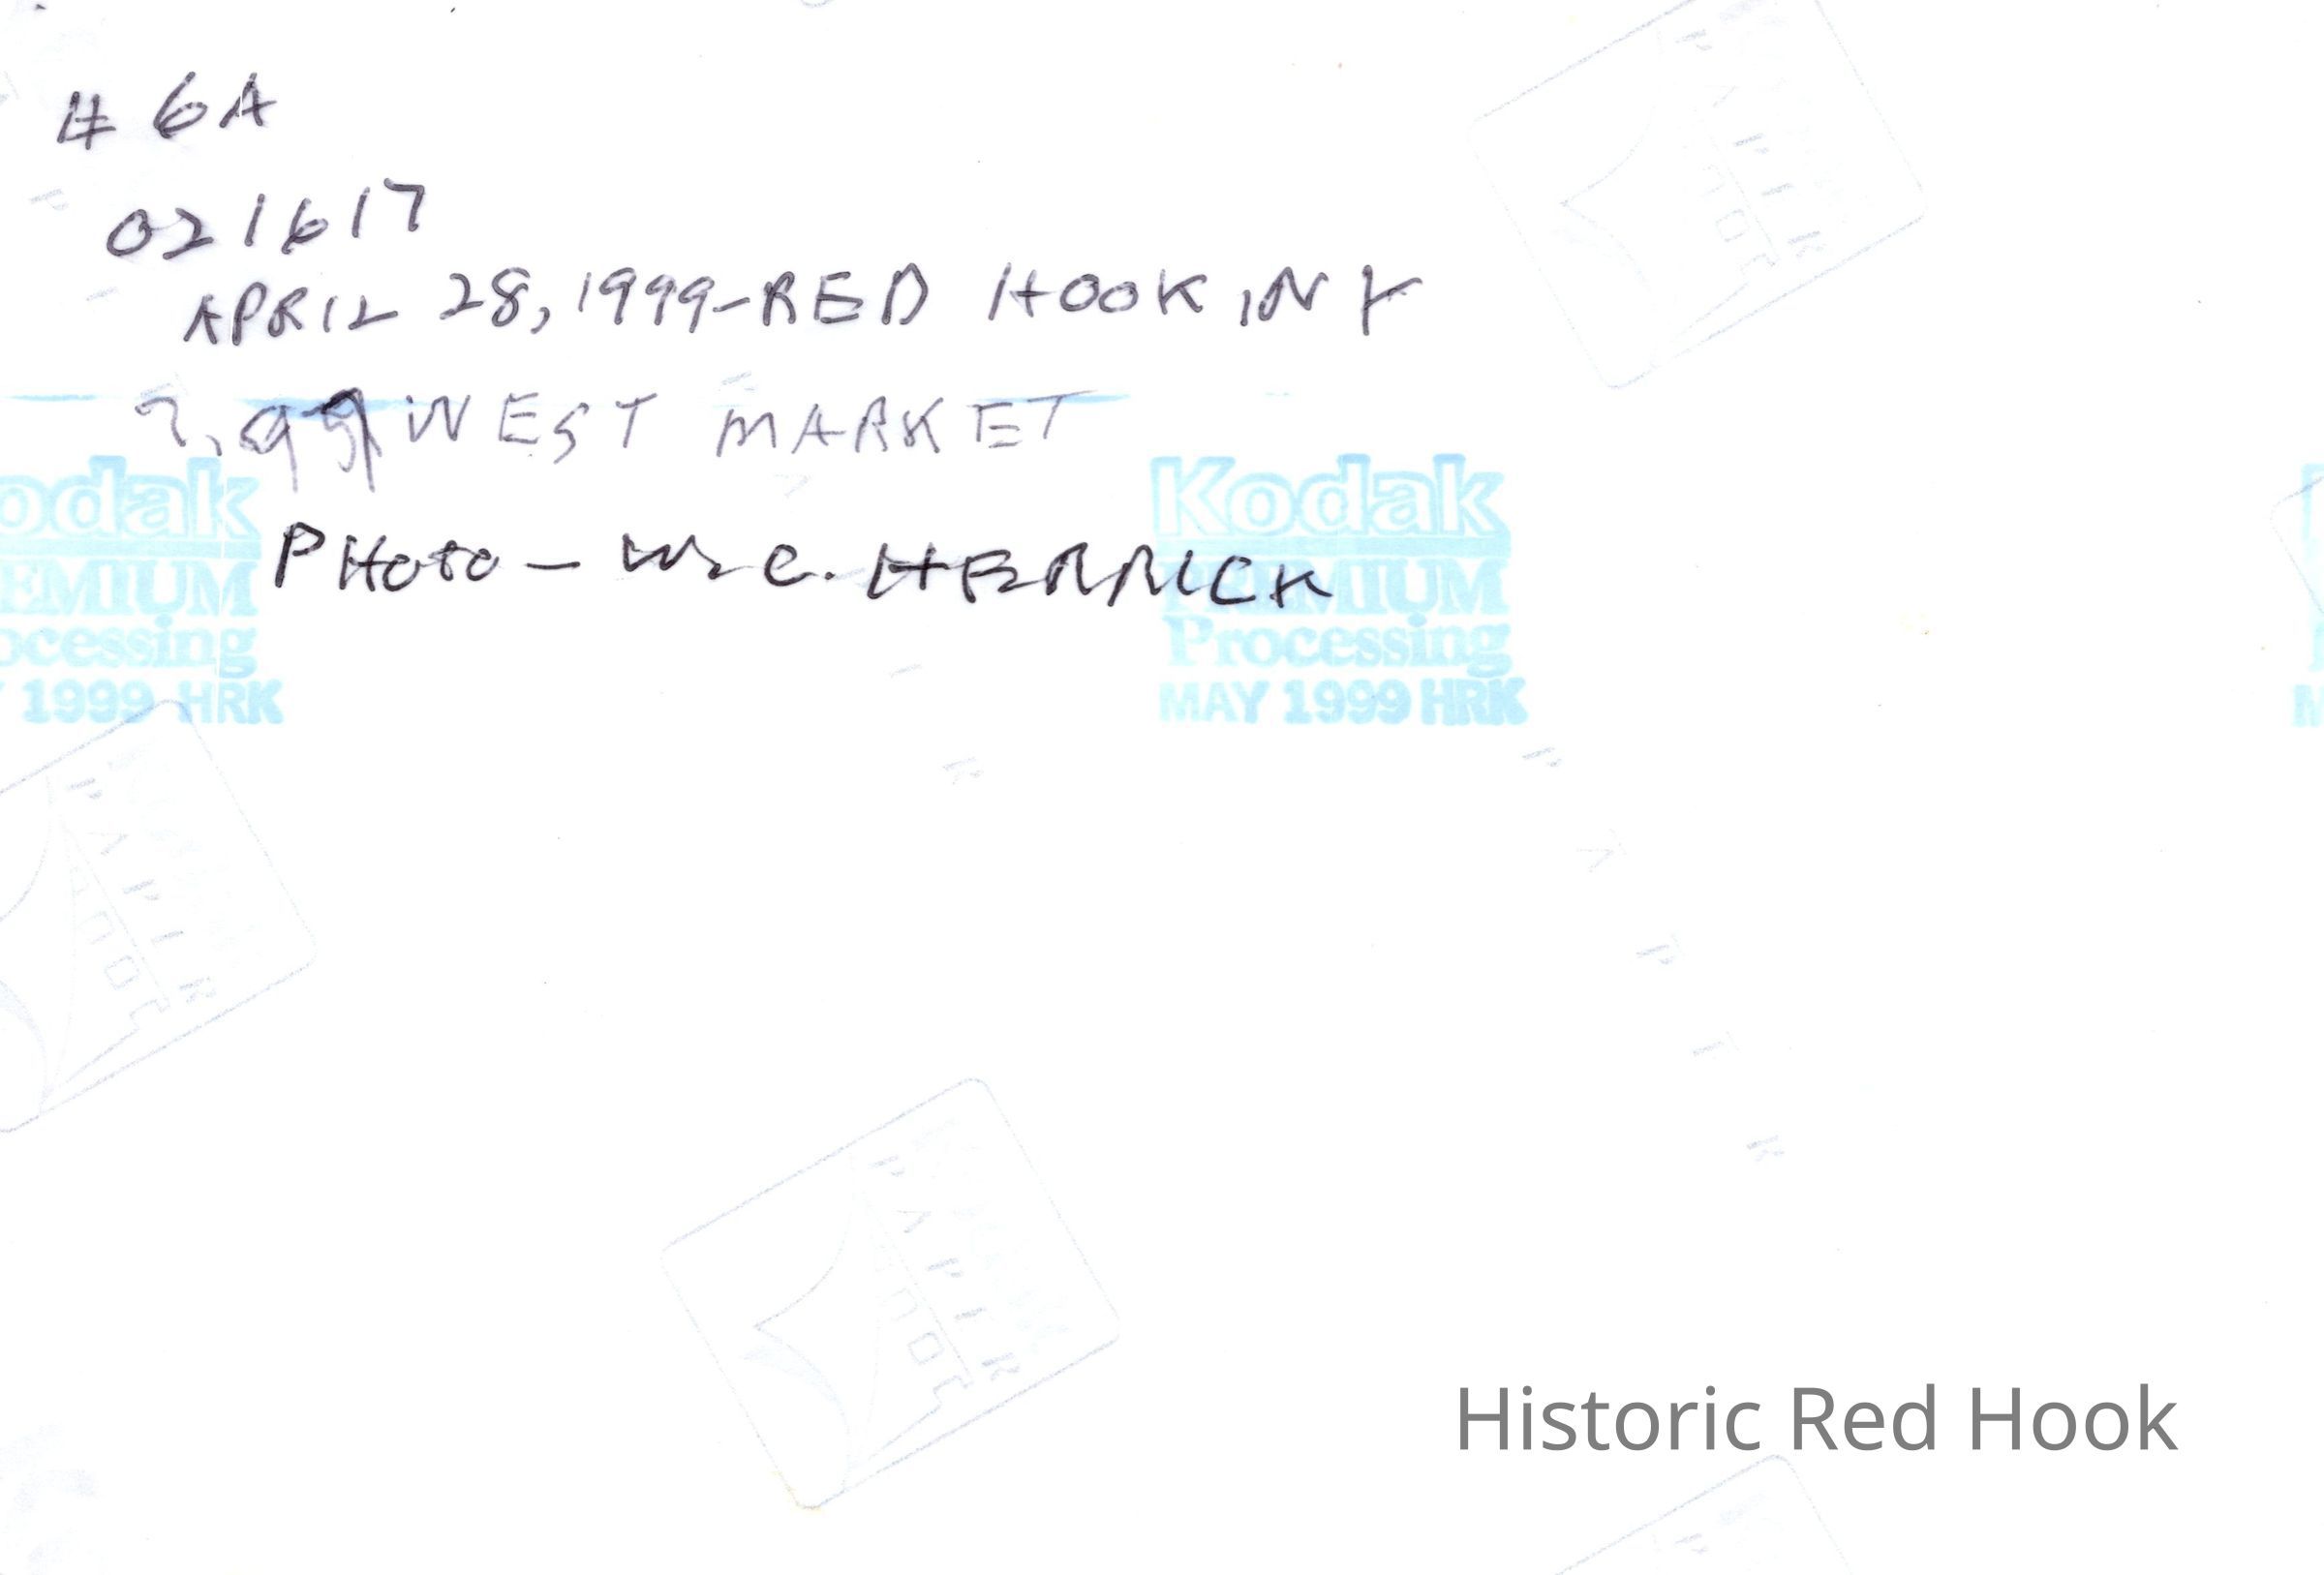 # 6A
021617
APRIL 28, 1999-RED HOOK, NY
99 WEST MARKET
PHOTO - Wm C. HERRICK
odak
Kodak
EMIUM
PREMIUM
ocessing
Processing
1999 HRK
MAY 1999 HRK
PAPIR
PAPIR
PAPIR
PAPIR
Historic Red Hook